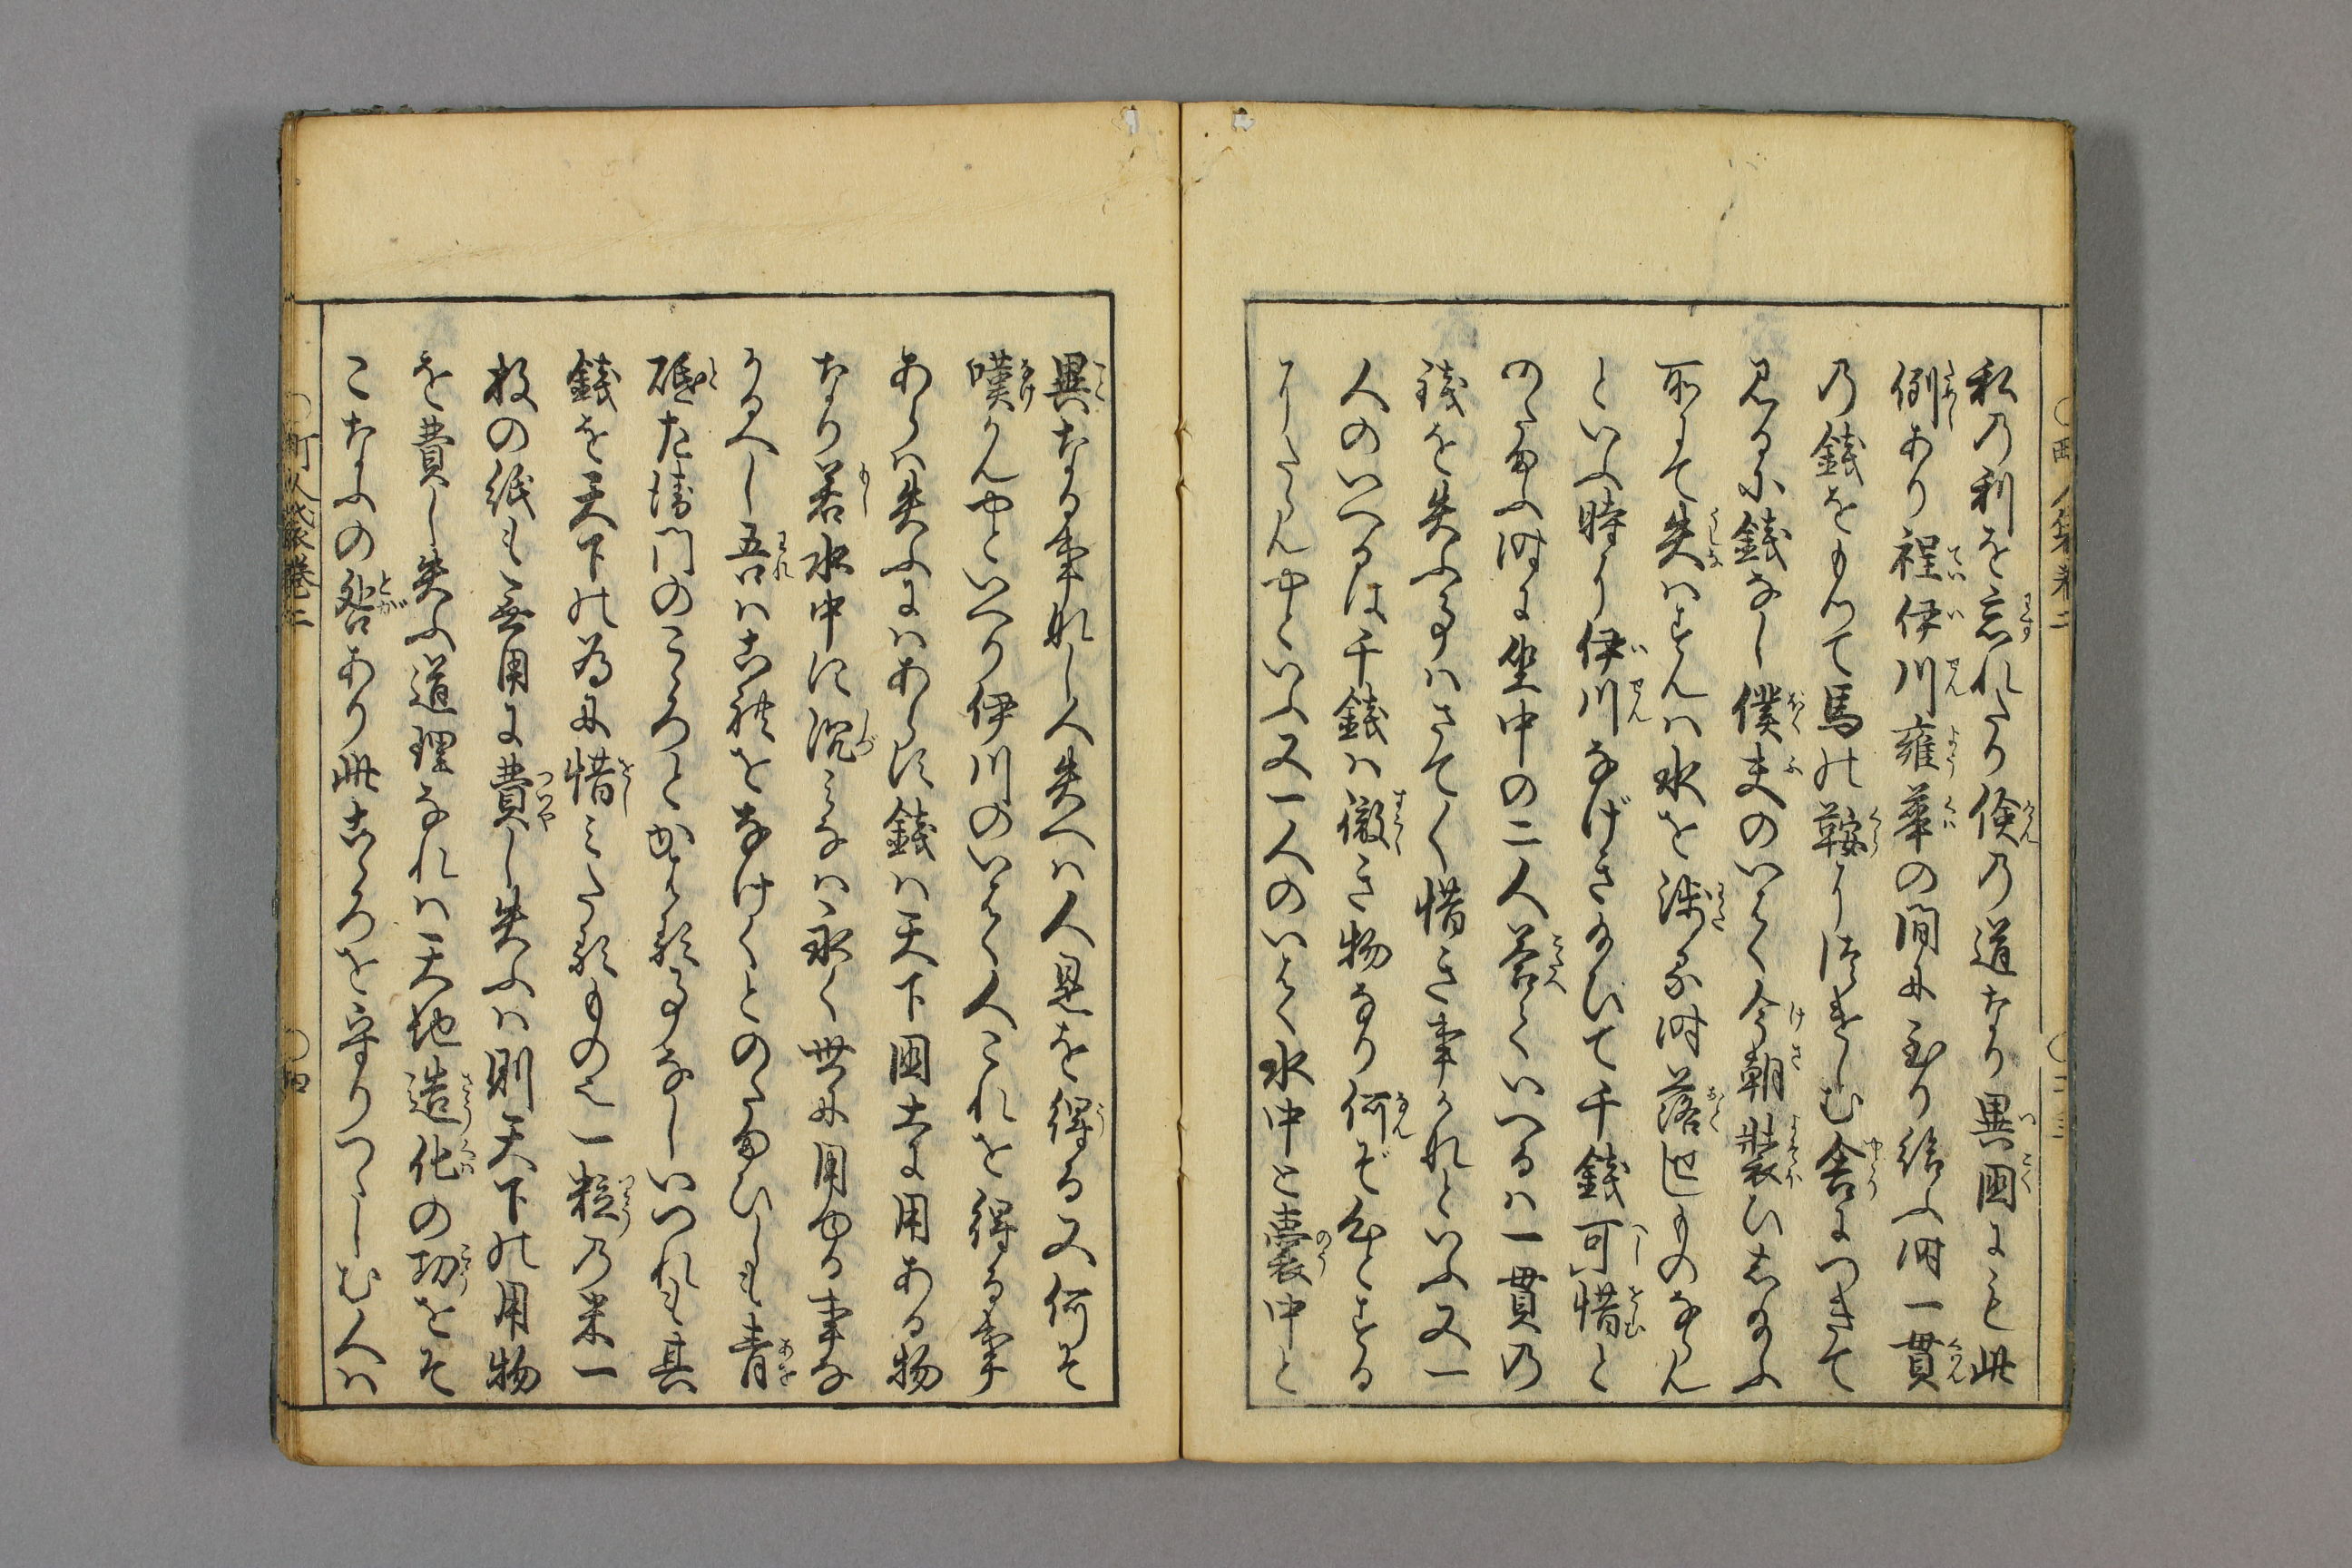 私の利を忘れたり倹の道なり異国にも此
例あり程伊川雍華の間に至り給ふ時一貫
の銭をもつて馬の鞍にはさむ舎につきて
見るに銭なし僕夫のいはく今朝装ひし給ふ
所にて失はすんは水を渉る時落せしものならん
といふ時に伊川なげき給ひて千銭可惜と
のたまふ時に坐中の二人答ていへるは一貫の
銭を失ふ事はさてく惜き事かなといふ又一
人のいへるは千銭は微き物なり何ぞ心とする
にたらんやといふ又一人のいはく水中と嚢中と
異なる事なし人失へは人是を得る又何そ
嘆かんやといへり伊川のいはく人これを得る事
あらは失ふにはあらす銭は天下国土に用ある物
なり若水中に沈みなは永く世に用ゆる事な
かるへし吾は是をなけくとのたまひしも青
砥左衛門のこゝろとかはる事なしいつれも其
銭を天下の為に惜みたるもの也一粒の米一
枚の紙も無用に費し失ふは則天下の用物
を費し失ふ道理なれは天地造化の功をそ
こなふの咎あり此こゝろを守りつゝしむ人は
町人嚢巻二